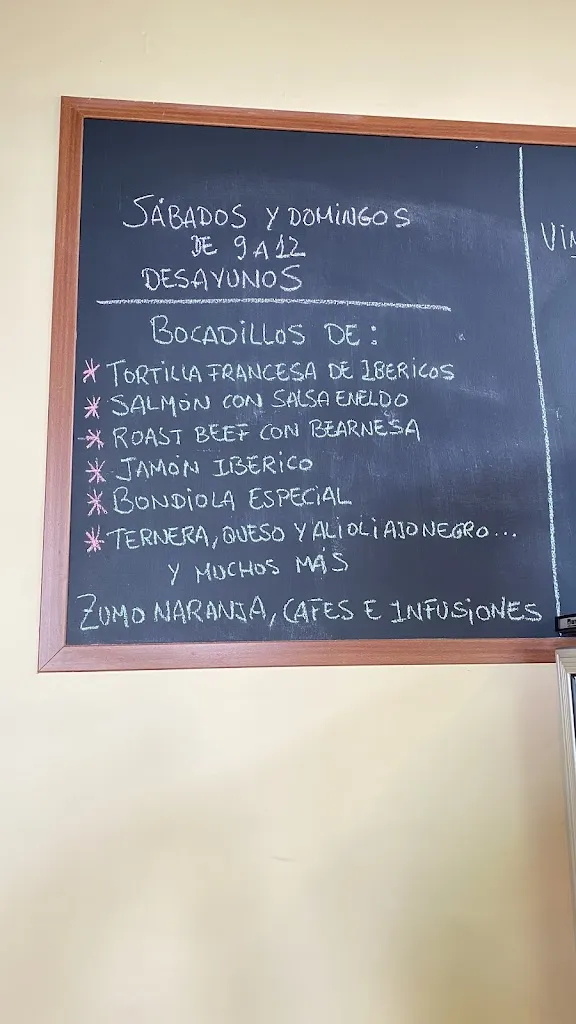 SÁBADOS Y DOMINGOS
DE 9 A 12
DESAYUNOS
BOCADILLOS DE:
* TORTILLA FRANCESA DE IBERICOS
* SALMÓN CON SALSA ENELDO
* ROAST BEEF CON BEARNESA
* JAMÓN IBERICO
* BONDIOLA ESPECIAL
* TERNERA, QUESO Y ALIOLI AJO NEGRO...
Y MUCHOS MÁS
ZUMO NARANJA, CAFES E INFUSIONES